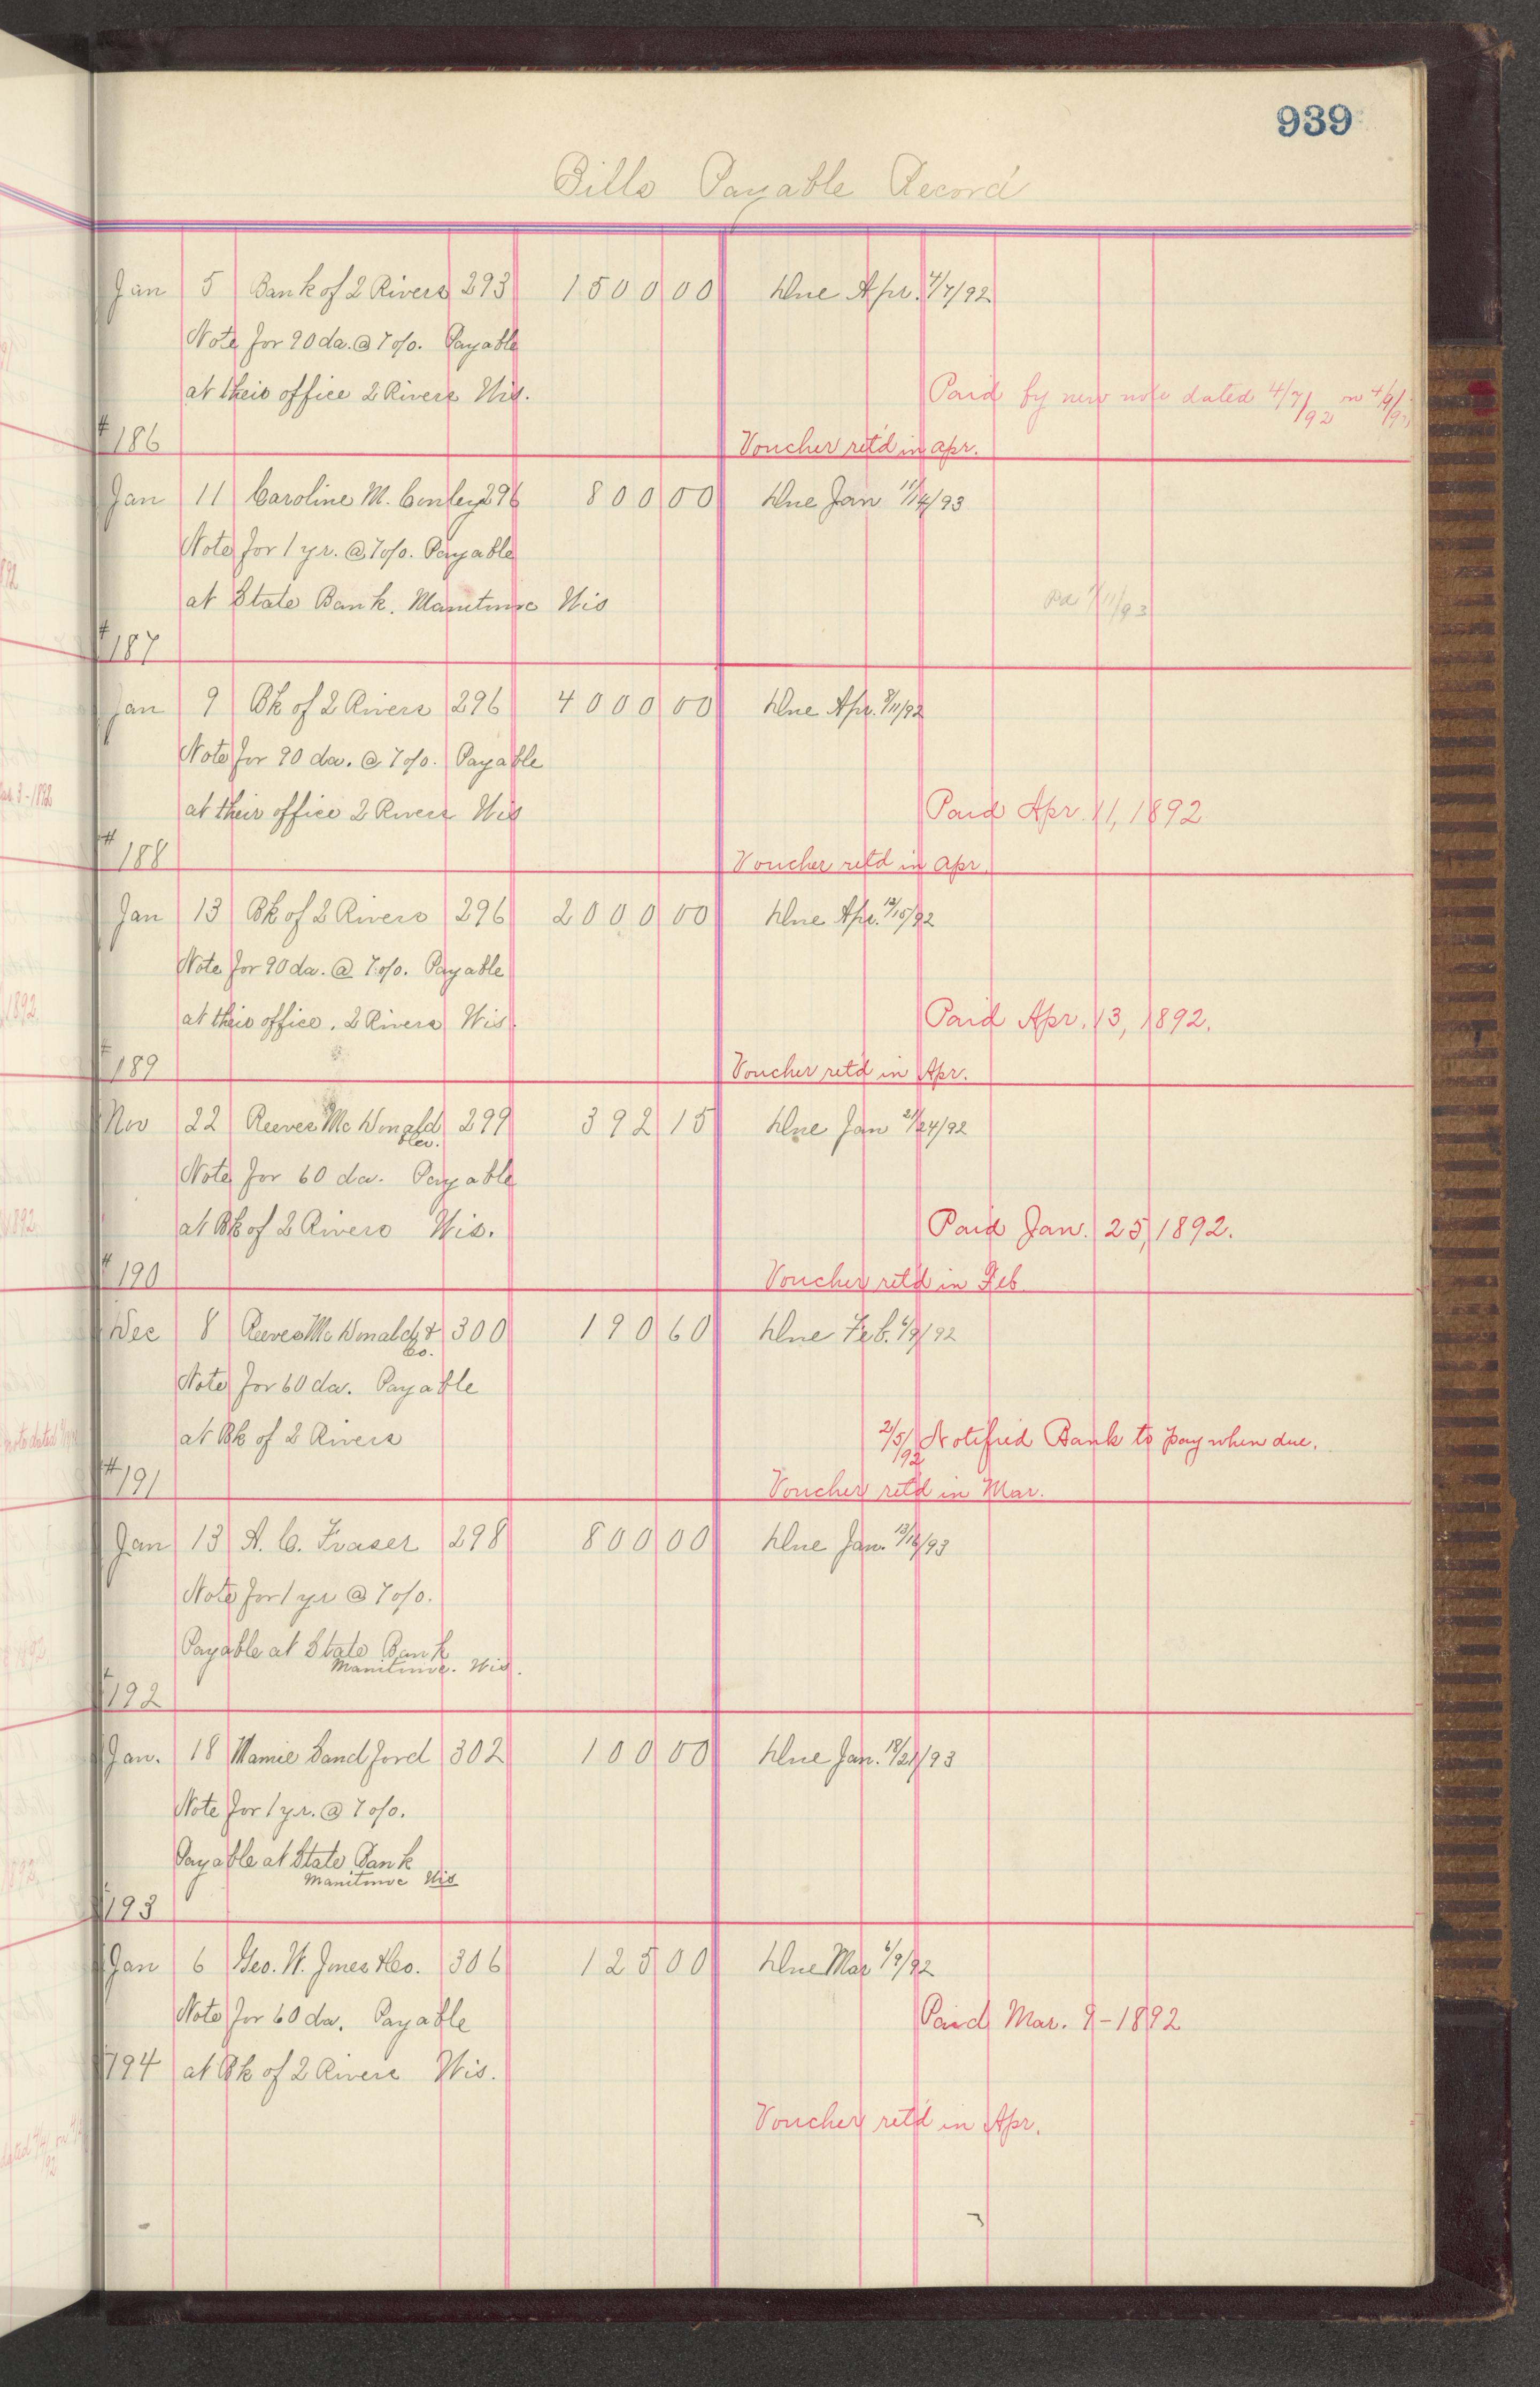 939
Bills Payable Record
Jan 5 Bank of 2 Rivers 293 1500 00 Due Apr. 4/7/92
Note for 90 da. @ 7 o/o. Payable
at their office 2 Rivers Wis. Paid by new note dated 4/7/92 on 4/9/92
# 186 Voucher ret'd in apr.
Jan 11 Caroline M. Conley 296 800 00 Due Jan 11/14/93
Note for 1 yr. @ 7 o/o. Payable
at State Bank. Manitowoc Wis Pd 1/11/93
# 187
Jan 9 Bk of 2 Rivers 296 4000 00 Due Apr. 8/11/92
Note for 90 da. @ 7 o/o. Payable
at their office 2 Rivers Wis Paid Apr. 11, 1892
# 188 Voucher ret'd in apr.
Jan 13 Bk of 2 Rivers 296 2000 00 Due Apr. 12/15/92
Note for 90 da. @ 7 o/o. Payable
at their office. 2 Rivers Wis. Paid Apr. 13, 1892.
# 189 Voucher ret'd in Apr.
Nov 22 Reeves McDonald 299 392 15 Due Jan 21/24/92
Note for 60 da. Payable
at Bk of 2 Rivers Wis. Paid Jan. 25, 1892.
# 190 Voucher ret'd in Feb
Dec 8 Reeves McDonald & 300 190 60 Due Feb. 6/9/92
Co.
Note for 60 da. Payable
at Bk of 2 Rivers 2/5/92 Notified Bank to pay when due.
# 191 Voucher ret'd in Mar.
Jan 13 A. C. Fraser 298 800 00 Due Jan. 13/16/93
Note for 1 yr @ 7 o/o.
Payable at State Bank
Manitowoc. Wis.
# 192
Jan. 18 Mamie Sandford 302 100 00 Due Jan. 18/21/93
Note for 1 yr. @ 7 o/o.
Payable at State Bank
Manitowoc Wis
# 193
Jan 6 Geo. W. Jones & Co. 306 125 00 Due Mar 6/9/92
Note for 60 da. Payable Paid Mar. 9 - 1892
# 194 at Bk of 2 Rivers Wis.
Voucher ret'd in Apr.